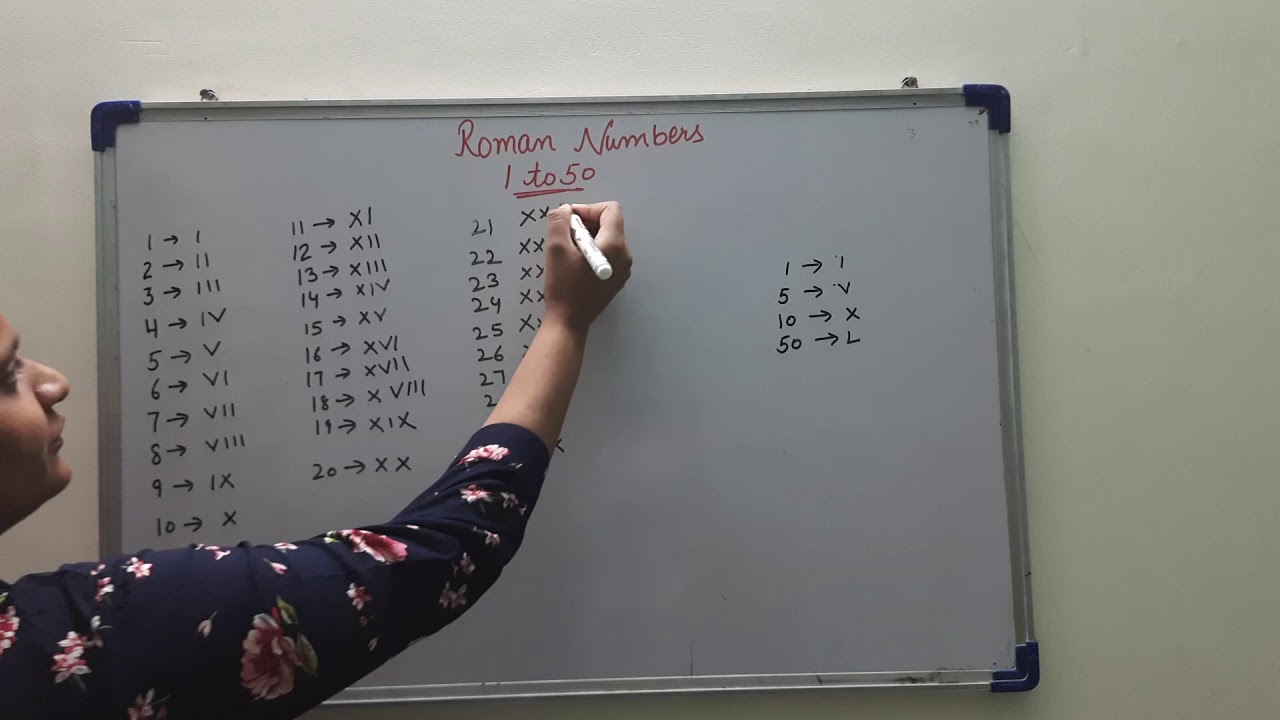 Roman Numbers
1 to 50
1 → I
2 → II
3 → III
4 → IV
5 → V
6 → VI
7 → VII
8 → VIII
9 → IX
10 → X
11 → XI
12 → XII
13 → XIII
14 → XIV
15 → XV
16 → XVI
17 → XVII
18 → XVIII
19 → XIX
20 → XX
21 XX
22 XX
23 XX
24 XX
25 XX
26
27
1 → I
5 → V
10 → X
50 → L